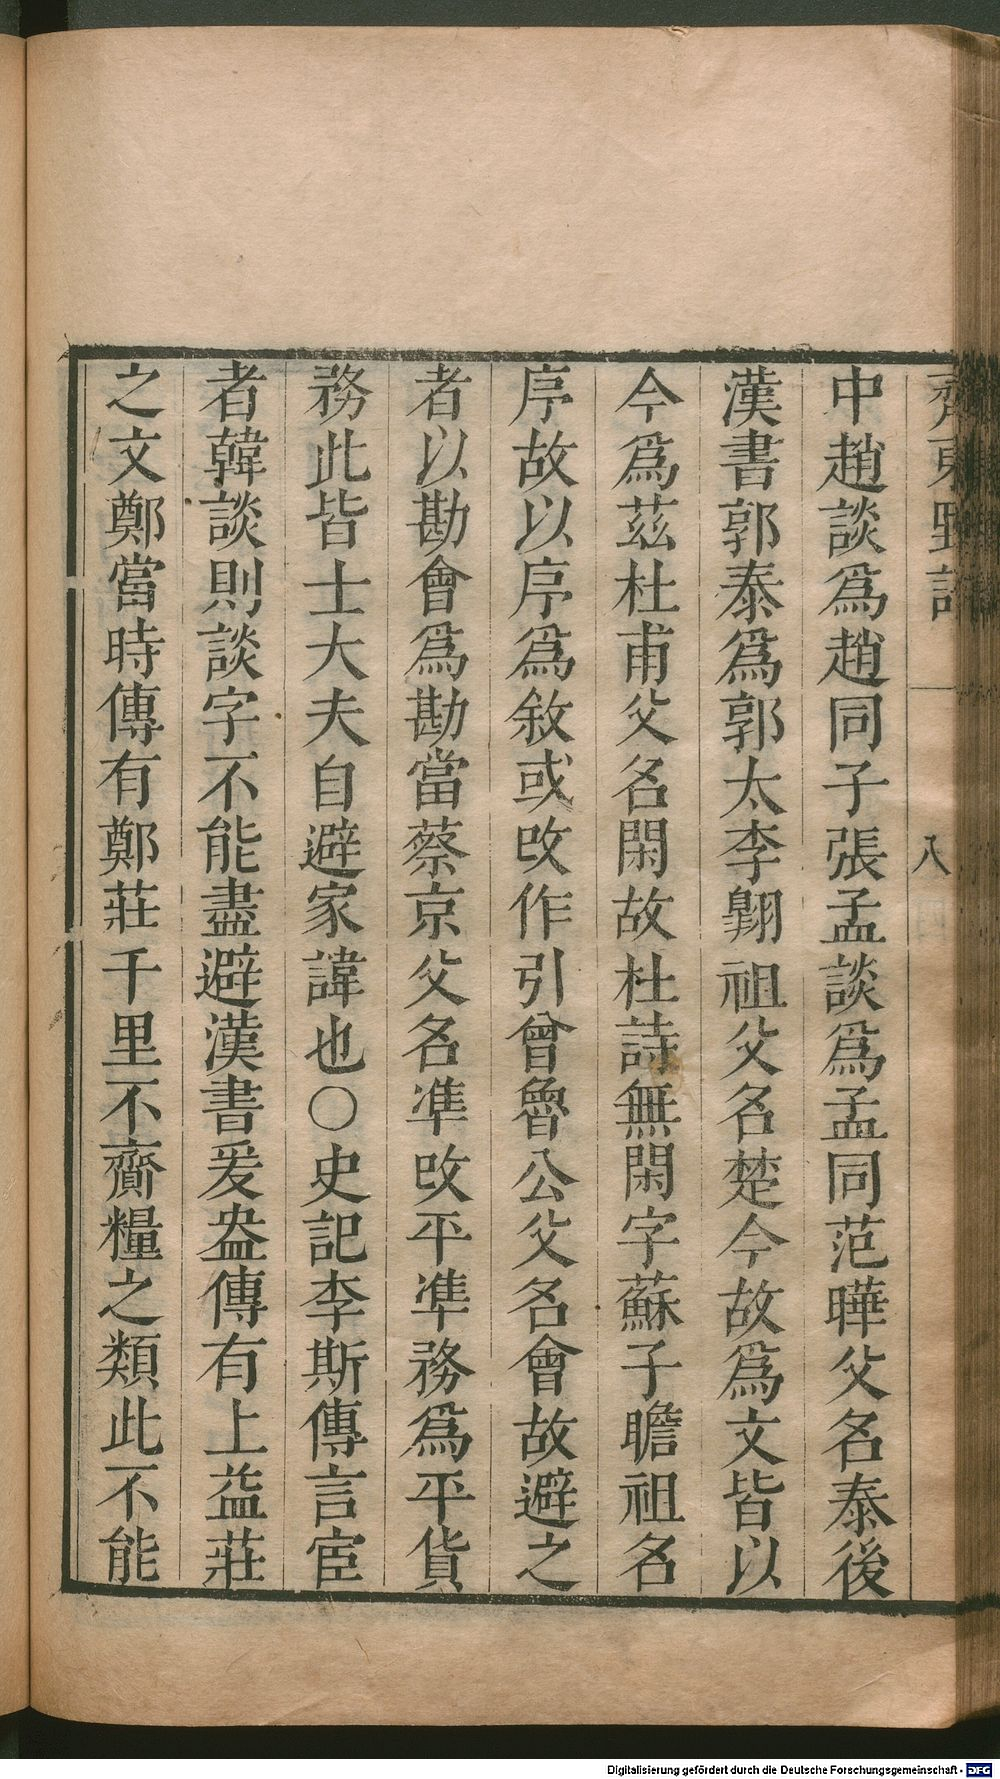 齊東野語
八
中趙談爲趙同子張孟談爲孟同范曄父名泰後
漢書郭泰爲郭太李翺祖父名楚今故爲文皆以
今爲茲杜甫父名閑故杜詩無閑字蘇子瞻祖名
序故以序爲敘或改作引曾魯公父名會故避之
者以勘會爲勘當蔡京父名準改平準務爲平貨
務此皆士大夫自避家諱也○史記李斯傳言宦
者韓談則談字不能盡避漢書爰盎傳有上益莊
之文鄭當時傳有鄭莊千里不齎糧之類此不能
Digitalisierung gefördert durch die Deutsche Forschungsgemeinschaft - DFG